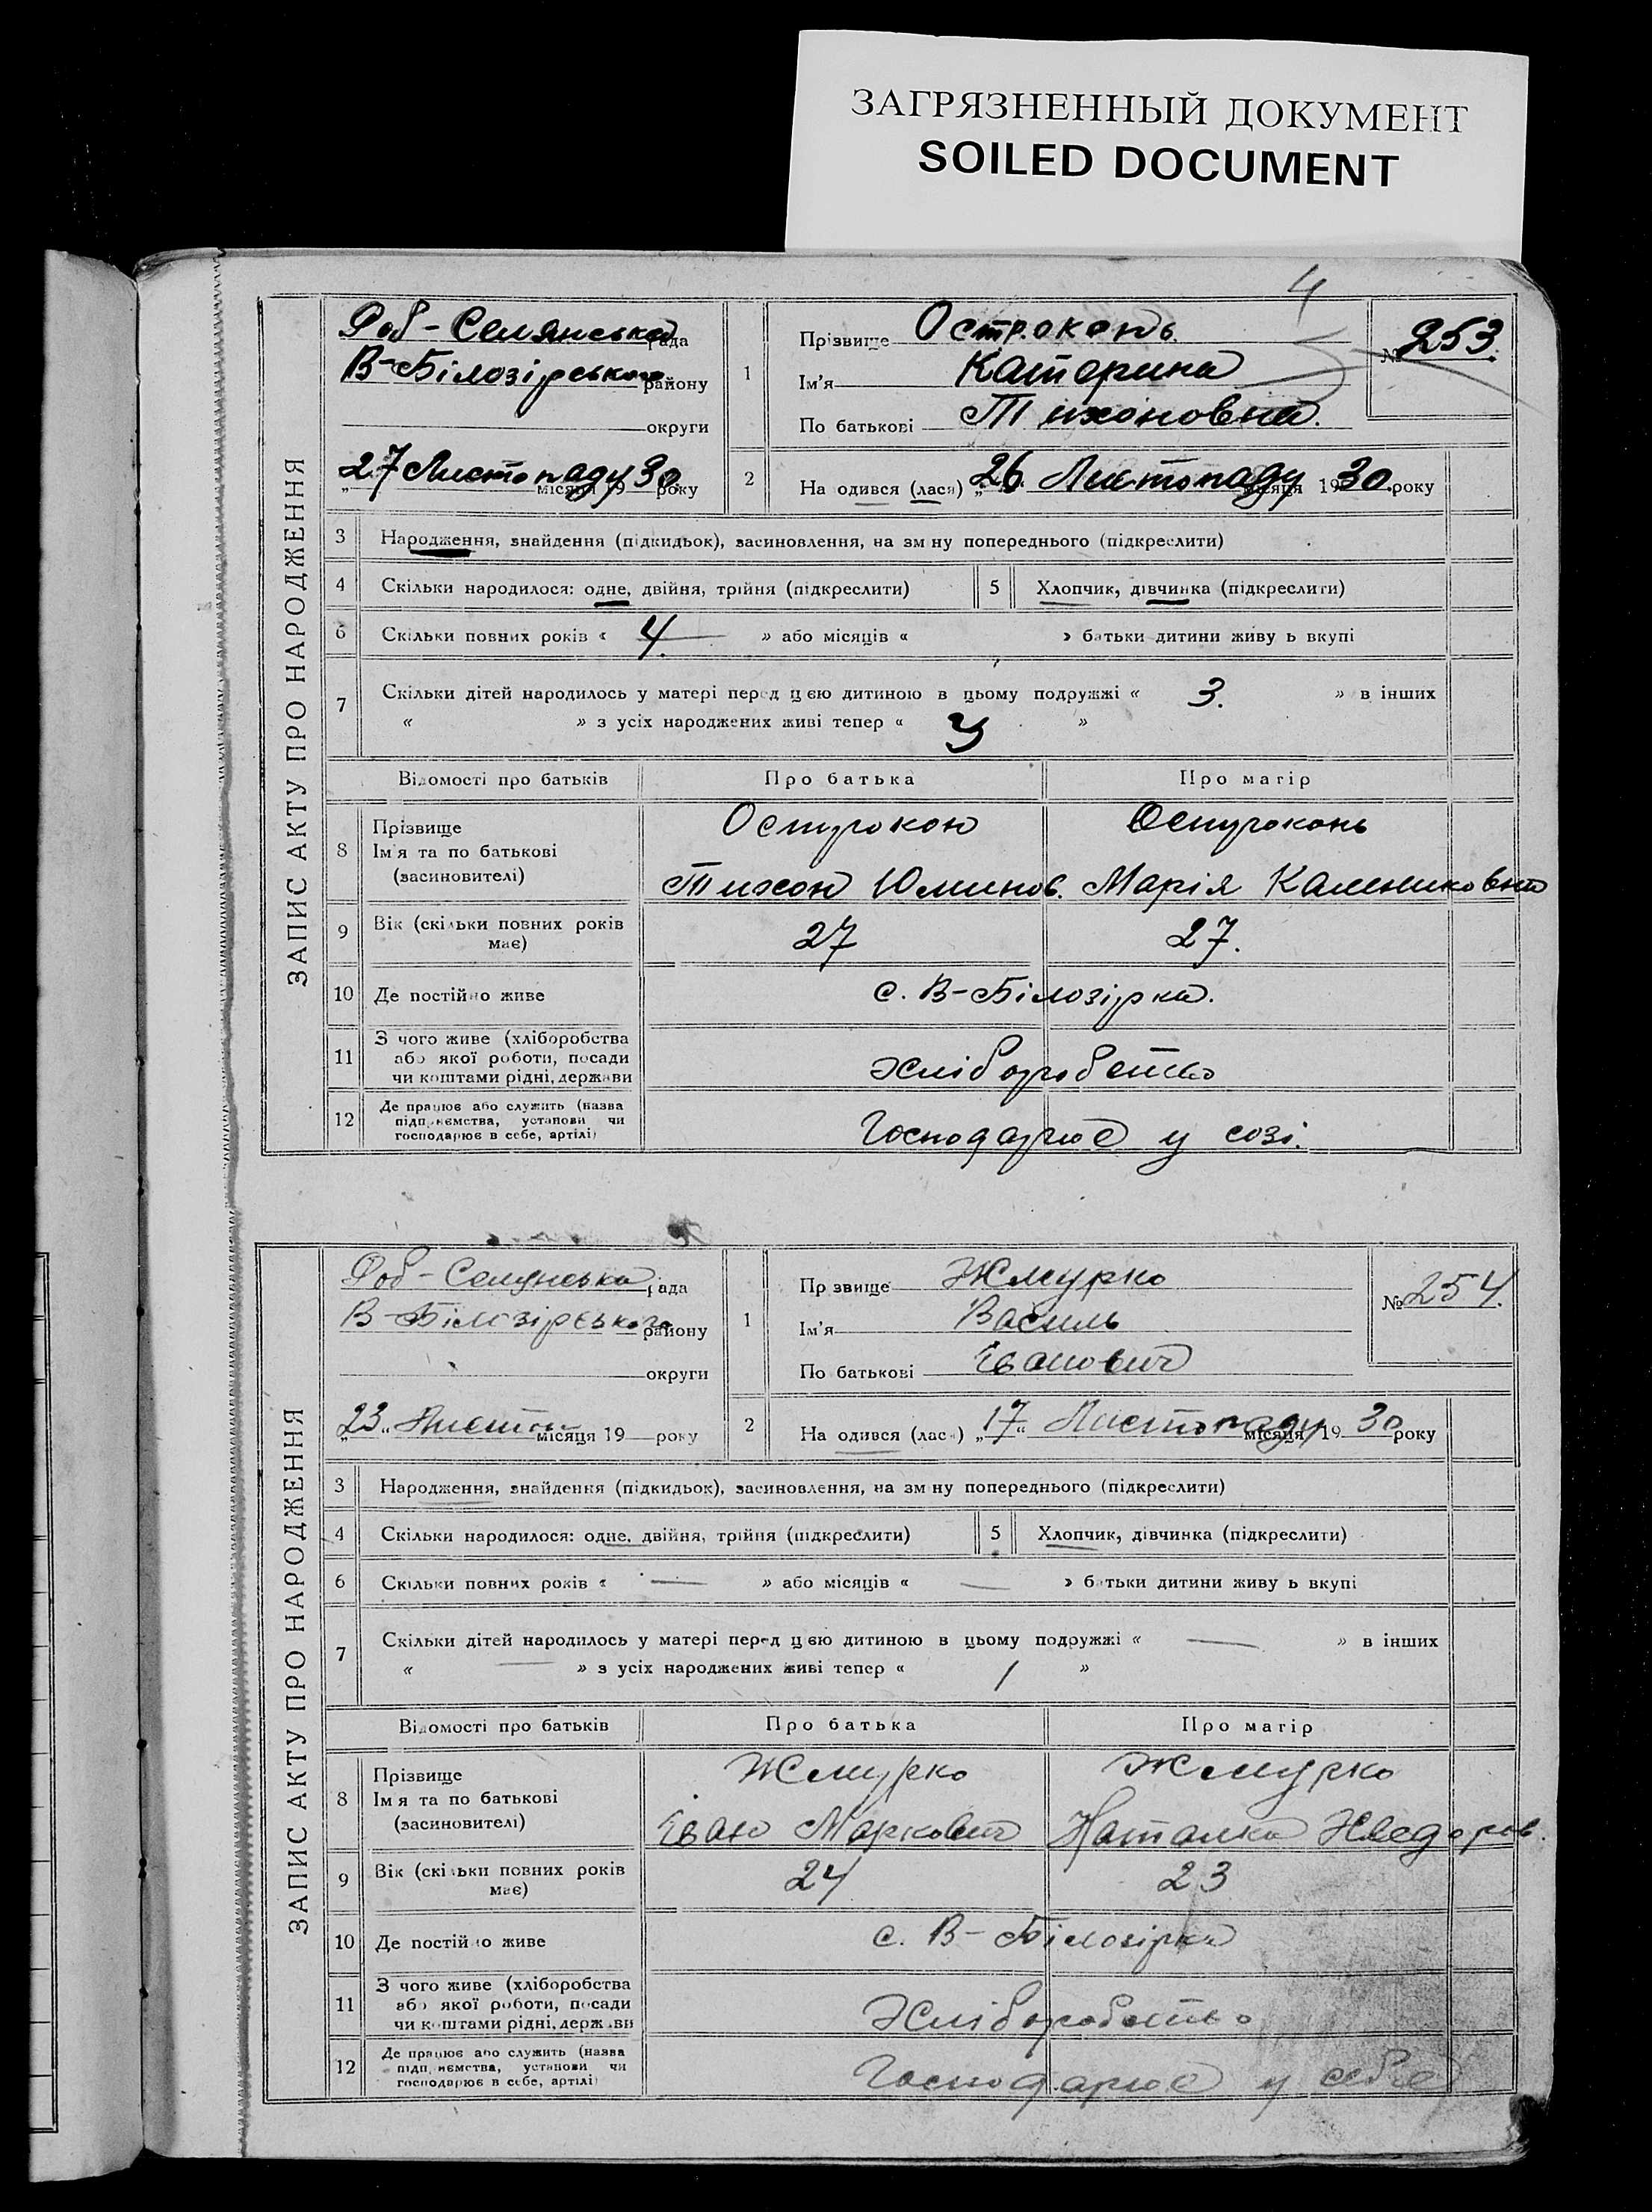 ЗАГРЯЗНЕННЫЙ ДОКУМЕНТ
SOILED DOCUMENT
4
ЗАПИС АКТУ ПРО НАРОДЖЕННЯ
Роб-Селянська рада
В-Білозірського району
округи
27 Листопаду місяця 1930 року
1 Прізвище Остроконь
Ім'я Катерина
По батькові Тихоновна.
№ 253.
2 На одився (лася) „26 Листопаду місяця 1930 року
3 Народження, знайдення (підкидьок), васиновлення, на зм ну попереднього (підкреслити)
4 Скільки народилося: одне, двійня, трійня (підкреслити) 5 Хлопчик, дівчинка (підкреслити)
6 Скільки повних років « 4. » або місяців « » батьки дитини живу ь вкупі
7 Скільки дітей народилось у матері перед цею дитиною в цьому подружжі « 3. » в інших
« » з усіх народжених живі тепер « 3 »
Відомості про батьків Про батька Про матір
8 Прізвище Остроконь Остроконь
Ім'я та по батькові
(васиновителі) Тихон Марія Калениковна
9 Вік (скільки повних років має) 27 27.
10 Де постійно живе с. В-Білозірка.
11 З чого живе (хліборобства
або якої роботи, посади
чи коштами рідні, держави хліборобство
12 Де працює або служить (назва
підприємства, установи чи
господарює в себе, артілі) Господарює у созі.
ЗАПИС АКТУ ПРО НАРОДЖЕННЯ
Роб-Селянська рада
В-Білозірського району
округи
„23„ Листоп місяця 19 року
1 Пр звище Жмурко
Ім'я Василь
По батькові Іванович
№ 254.
2 На одився (лася) „17“ Листопаду місяця 1930 року
3 Народження, знайдення (підкидьок), васиновлення, на зм ну попереднього (підкреслити)
4 Скільки народилося: одне, двійня, трійня (підкреслити) 5 Хлопчик, дівчинка (підкреслити)
6 Скільки повних років « — » або місяців « — » батьки дитини живу ь вкупі
7 Скільки дітей народилось у матері перед цею дитиною в цьому подружжі « — » в інших
« — » з усіх народжених живі тепер « 1 »
Відомості про батьків Про батька Про матір
8 Прізвище Жмурко Жмурко
Ім'я та по батькові
(васиновителі) Іван Маркович Наталка
9 Вік (скільки повних років має) 24 23
10 Де постійно живе с. В-Білозірка
11 З чого живе (хліборобства
або якої роботи, посади
чи коштами рідні, держави Хліборобство
12 Де працює або служить (назва
підприємства, установи чи
господарює в себе, артілі) Господарює у себе